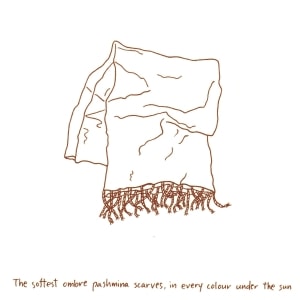 The softest ombre pashmina scarves, in every colour under the sun